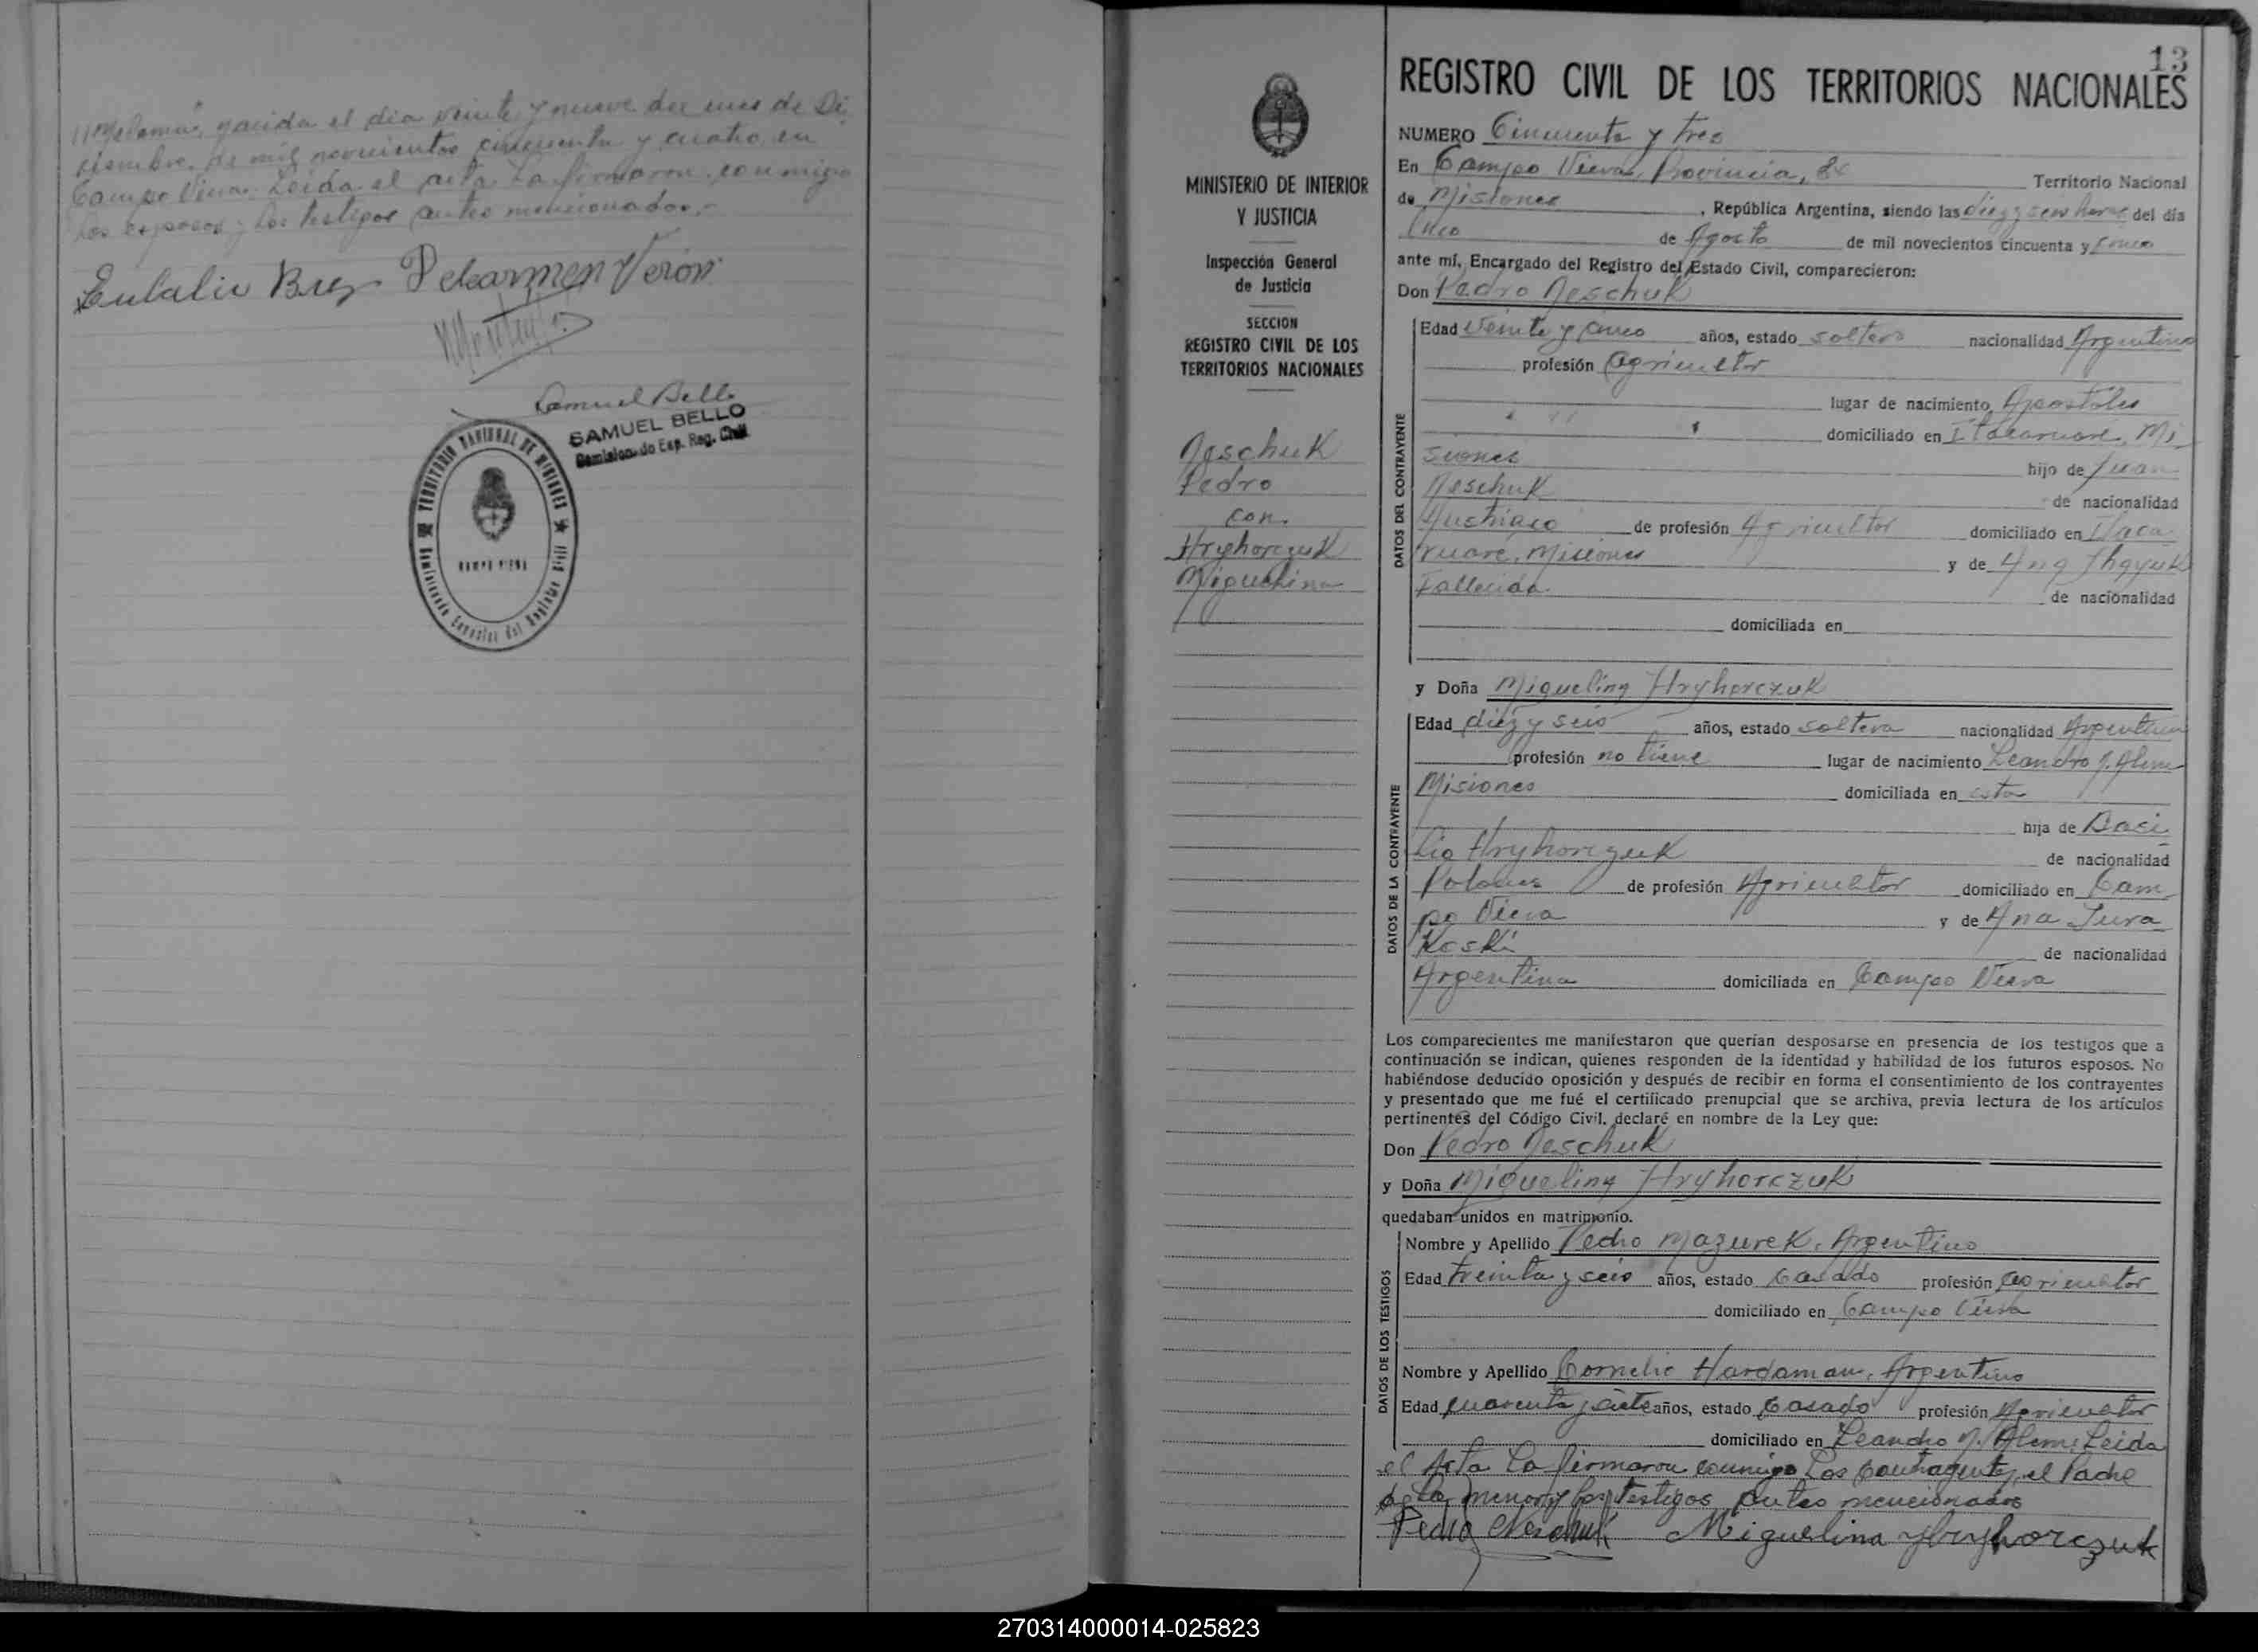 nacida el dia veinte y nueve del mes de Di
ciembre de mil novecientos cincuenta y cuatro, en
Campo Viera. Leida el acta La firmaron conmigo
los esposos y los testigos antes mencionados.-
Eulalio Brez Delcarmen Verón
Samuel Bello
SAMUEL BELLO
Comisionado Esp. Reg. Civil
TERRITORIO NACIONAL DE MISIONES
CAMPO VIERA
13
MINISTERIO DE INTERIOR
Y JUSTICIA
Inspección General
de Justicia
SECCION
REGISTRO CIVIL DE LOS
TERRITORIOS NACIONALES
Neschuk
Pedro
con.
Hryhorczuk
Miguelina
REGISTRO CIVIL DE LOS TERRITORIOS NACIONALES
NUMERO Cincuenta y Tres
En Campo Viera, Provincia, de Territorio Nacional
de Misiones, República Argentina, siendo las diez y seis horas del día
cinco de Agosto de mil novecientos cincuenta y cinco
ante mí, Encargado del Registro del Estado Civil, comparecieron:
Don Pedro Neschuk
DATOS DEL CONTRAYENTE
Edad Veinte y cinco años, estado soltero nacionalidad Argentino
profesión Agricultor
lugar de nacimiento Apostoles
domiciliado en Itacaruare, Mi
siones hijo de Juan
Neschuk de nacionalidad
Austriaco de profesión Agricultor domiciliado en Itaca
ruare, Misiones y de Ana
Fallecida de nacionalidad
domiciliada en
y Doña Miguelina Hryhorczuk
DATOS DE LA CONTRAYENTE
Edad diez y seis años, estado soltera nacionalidad Argentina
profesión no tiene lugar de nacimiento Leandro N. Alem
Misiones domiciliada en esta
hija de Basi
lio Hryhorczuk de nacionalidad
Polones de profesión Agricultor domiciliado en Cam
po Viera y de Ana Jura
Koski de nacionalidad
Argentina domiciliada en Campo Viera
Los comparecientes me manifestaron que querían desposarse en presencia de los testigos que a
continuación se indican, quienes responden de la identidad y habilidad de los futuros esposos. No
habiéndose deducido oposición y después de recibir en forma el consentimiento de los contrayentes
y presentado que me fué el certificado prenupcial que se archiva, previa lectura de los artículos
pertinentes del Código Civil, declaré en nombre de la Ley que:
Don Pedro Neschuk
y Doña Miguelina Hryhorczuk
quedaban unidos en matrimonio.
DATOS DE LOS TESTIGOS
Nombre y Apellido Pedro Mazurek, Argentino
Edad treinta y seis años, estado Casado profesión Agricultor
domiciliado en Campo Viera
Nombre y Apellido Cornelio Hardaman, Argentino
Edad cuarenta y siete años, estado Casado profesión Agricultor
domiciliado en Leandro N. Alem, Leida
el Acta La firmaron conmigo Los Contrayentes, el Padre
de la menor y los testigos antes mencionados
Pedro Neschuk Miguelina Hryhorczuk
270314000014-025823